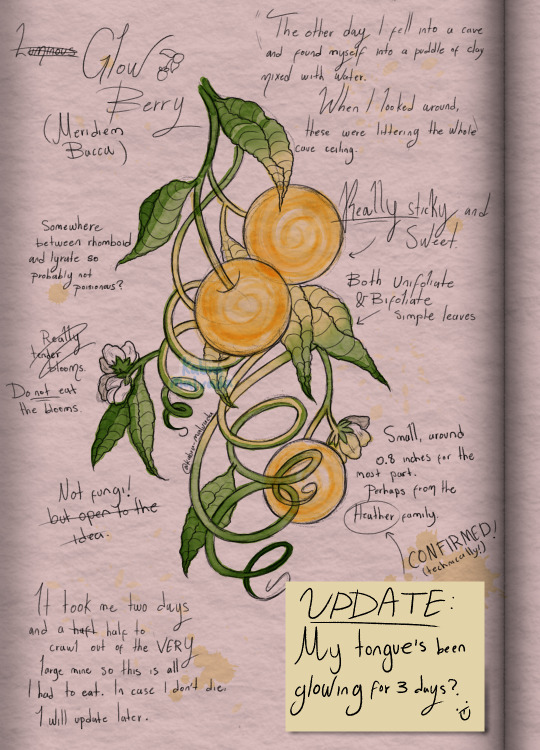 Luminous
Glow
Berry
(Meridiem
Bacca)
"The other day I fell into a cave
and found myself into a puddle of clay
mixed with water.
When I looked around,
these were littering the whole
cave ceiling.
Really sticky and
Sweet.
Somewhere
between rhomboid
and lyrate so
probably not
poisonous?
Both Unifoliate
& Bifoliate
Simple leaves
Really
tender
blooms.
Do not eat
the blooms.
Small, around
0.8 inches for the
most part.
Perhaps from the
Heather family.
CONFIRMED!
(technically!)
Not fungi!
but open to the
idea.
It took me two days
and a haft half to
crawl out of the VERY
large mine so this is all
I had to eat. In case I don't die,
I will update later.
UPDATE:
My tongue's been
glowing for 3 days?